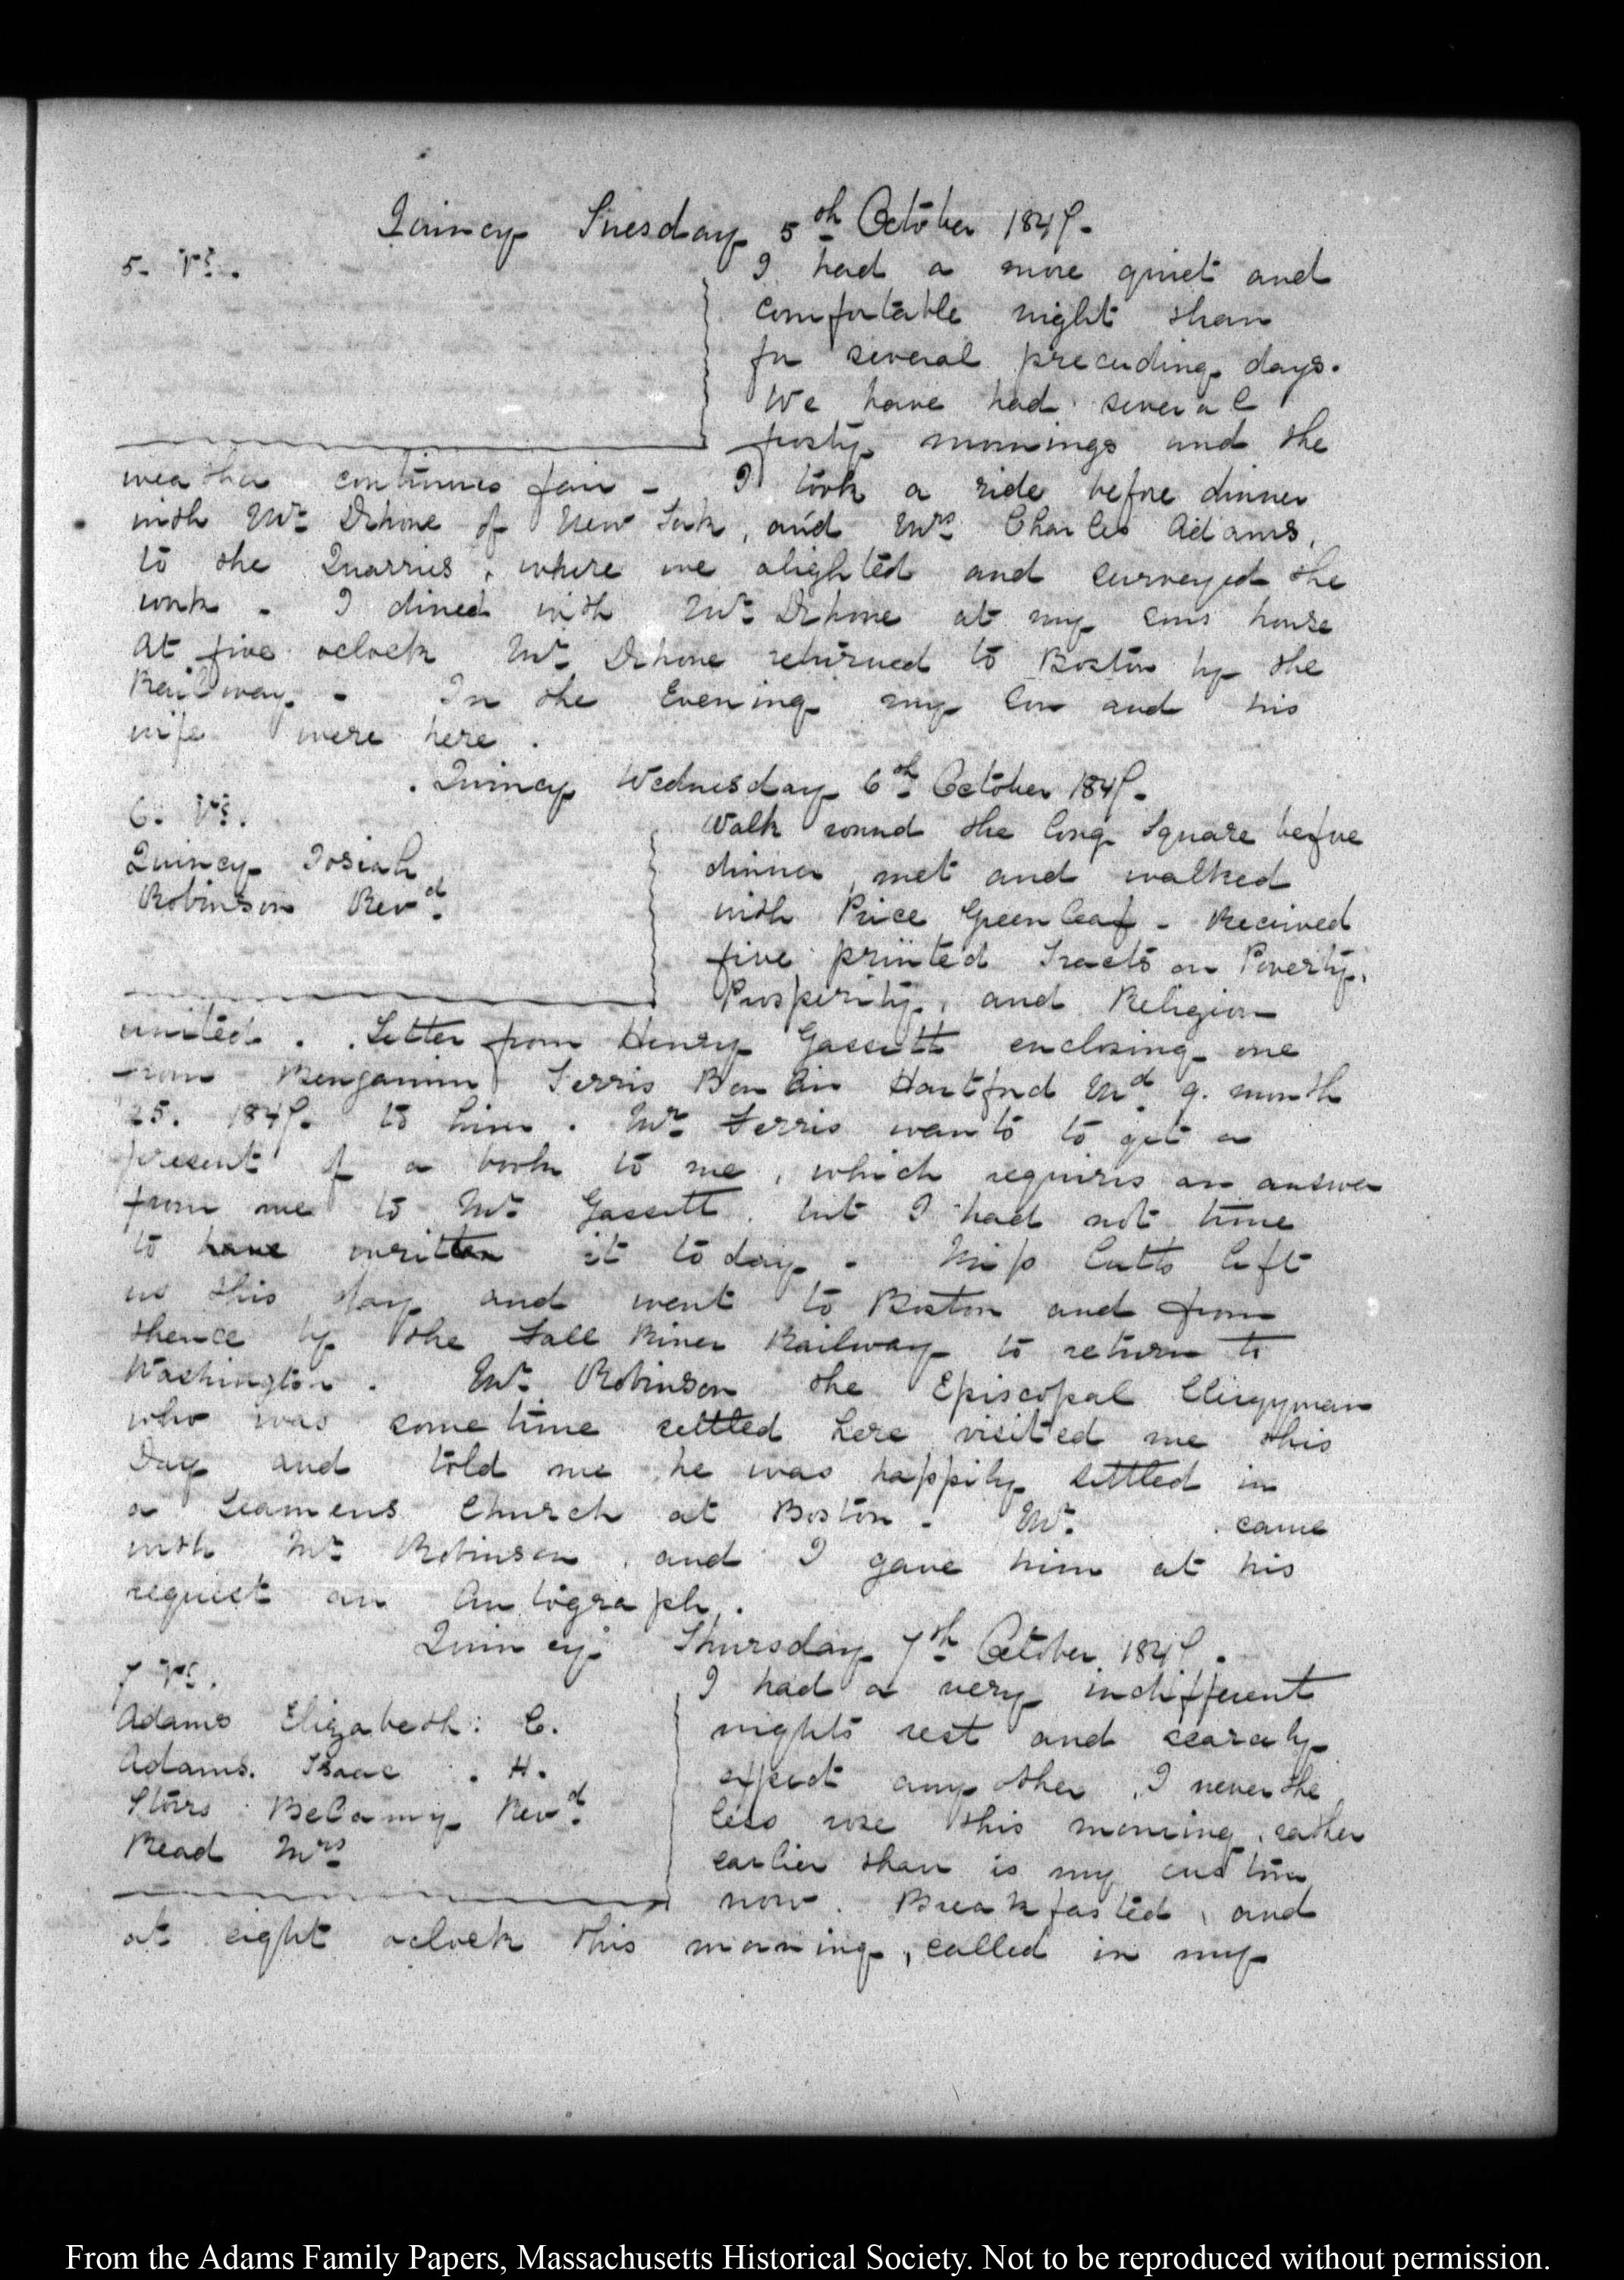 Quincy Tuesday 5th October 1847.
5. V:s.
I had a more quiet and
comfortable night than
for several preceding days.
We have had several
frosty mornings and the
weather continues fair - I took a ride before dinner
with Mr. Dehone of New York, and Mrs. Charles Adams,
to the Quarries, where we alighted and surveyed the
work - I dined with Mr. Dehone at my sons house
At five oclock Mr. Dehone returned to Boston by the
Railway. - In the Evening my Son and his
wife were here.
Quincy Wednesday 6th October 1847.
6. V:s.
Quincy Josiah
Robinson Revd.
Walk round the long Square before
dinner, met and walked
with Price Greenleaf - Received
five printed Tracts on Poverty,
Prosperity, and Religion
united. Letter from Henry Gassett enclosing one
from Benjamin Ferris Hartford Md. 9. month
25. 1847. to him. Mr. Ferris wants to get a
present of a book to me, which requires an answer
from me to Mr. Gassett, but I had not time
to have written it to day. Miss Cutts left
us this day and went to Boston and from
thence by the Fall River Railway to return to
Washington. Mr. Robinson the Episcopal Clergyman
who was some time settled here visited me this
Day and told me he was happily settled in
a Seamens Church at Boston - Mr. came
with Mr. Robinson, and I gave him at his
request an Autograph.
Quincy Thursday 7th October 1847.
7 V:s.
Adams Elizabeth: C.
Adams. Isaac. H.
Storrs Belamy Revd.
Read Mrs.
I had a very indifferent
nights rest and scarcely
expect any other. I neverthe
less rose this morning, rather
earlier than is my custom
now. Breakfasted, and
at eight oclock this morning, called in my
From the Adams Family Papers, Massachusetts Historical Society. Not to be reproduced without permission.